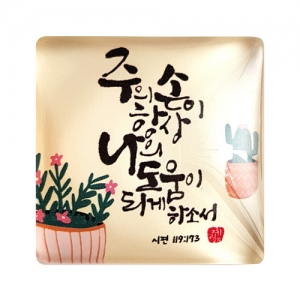 주의 손이
항상
나의 도움이
되게 하소서
시편 119:173